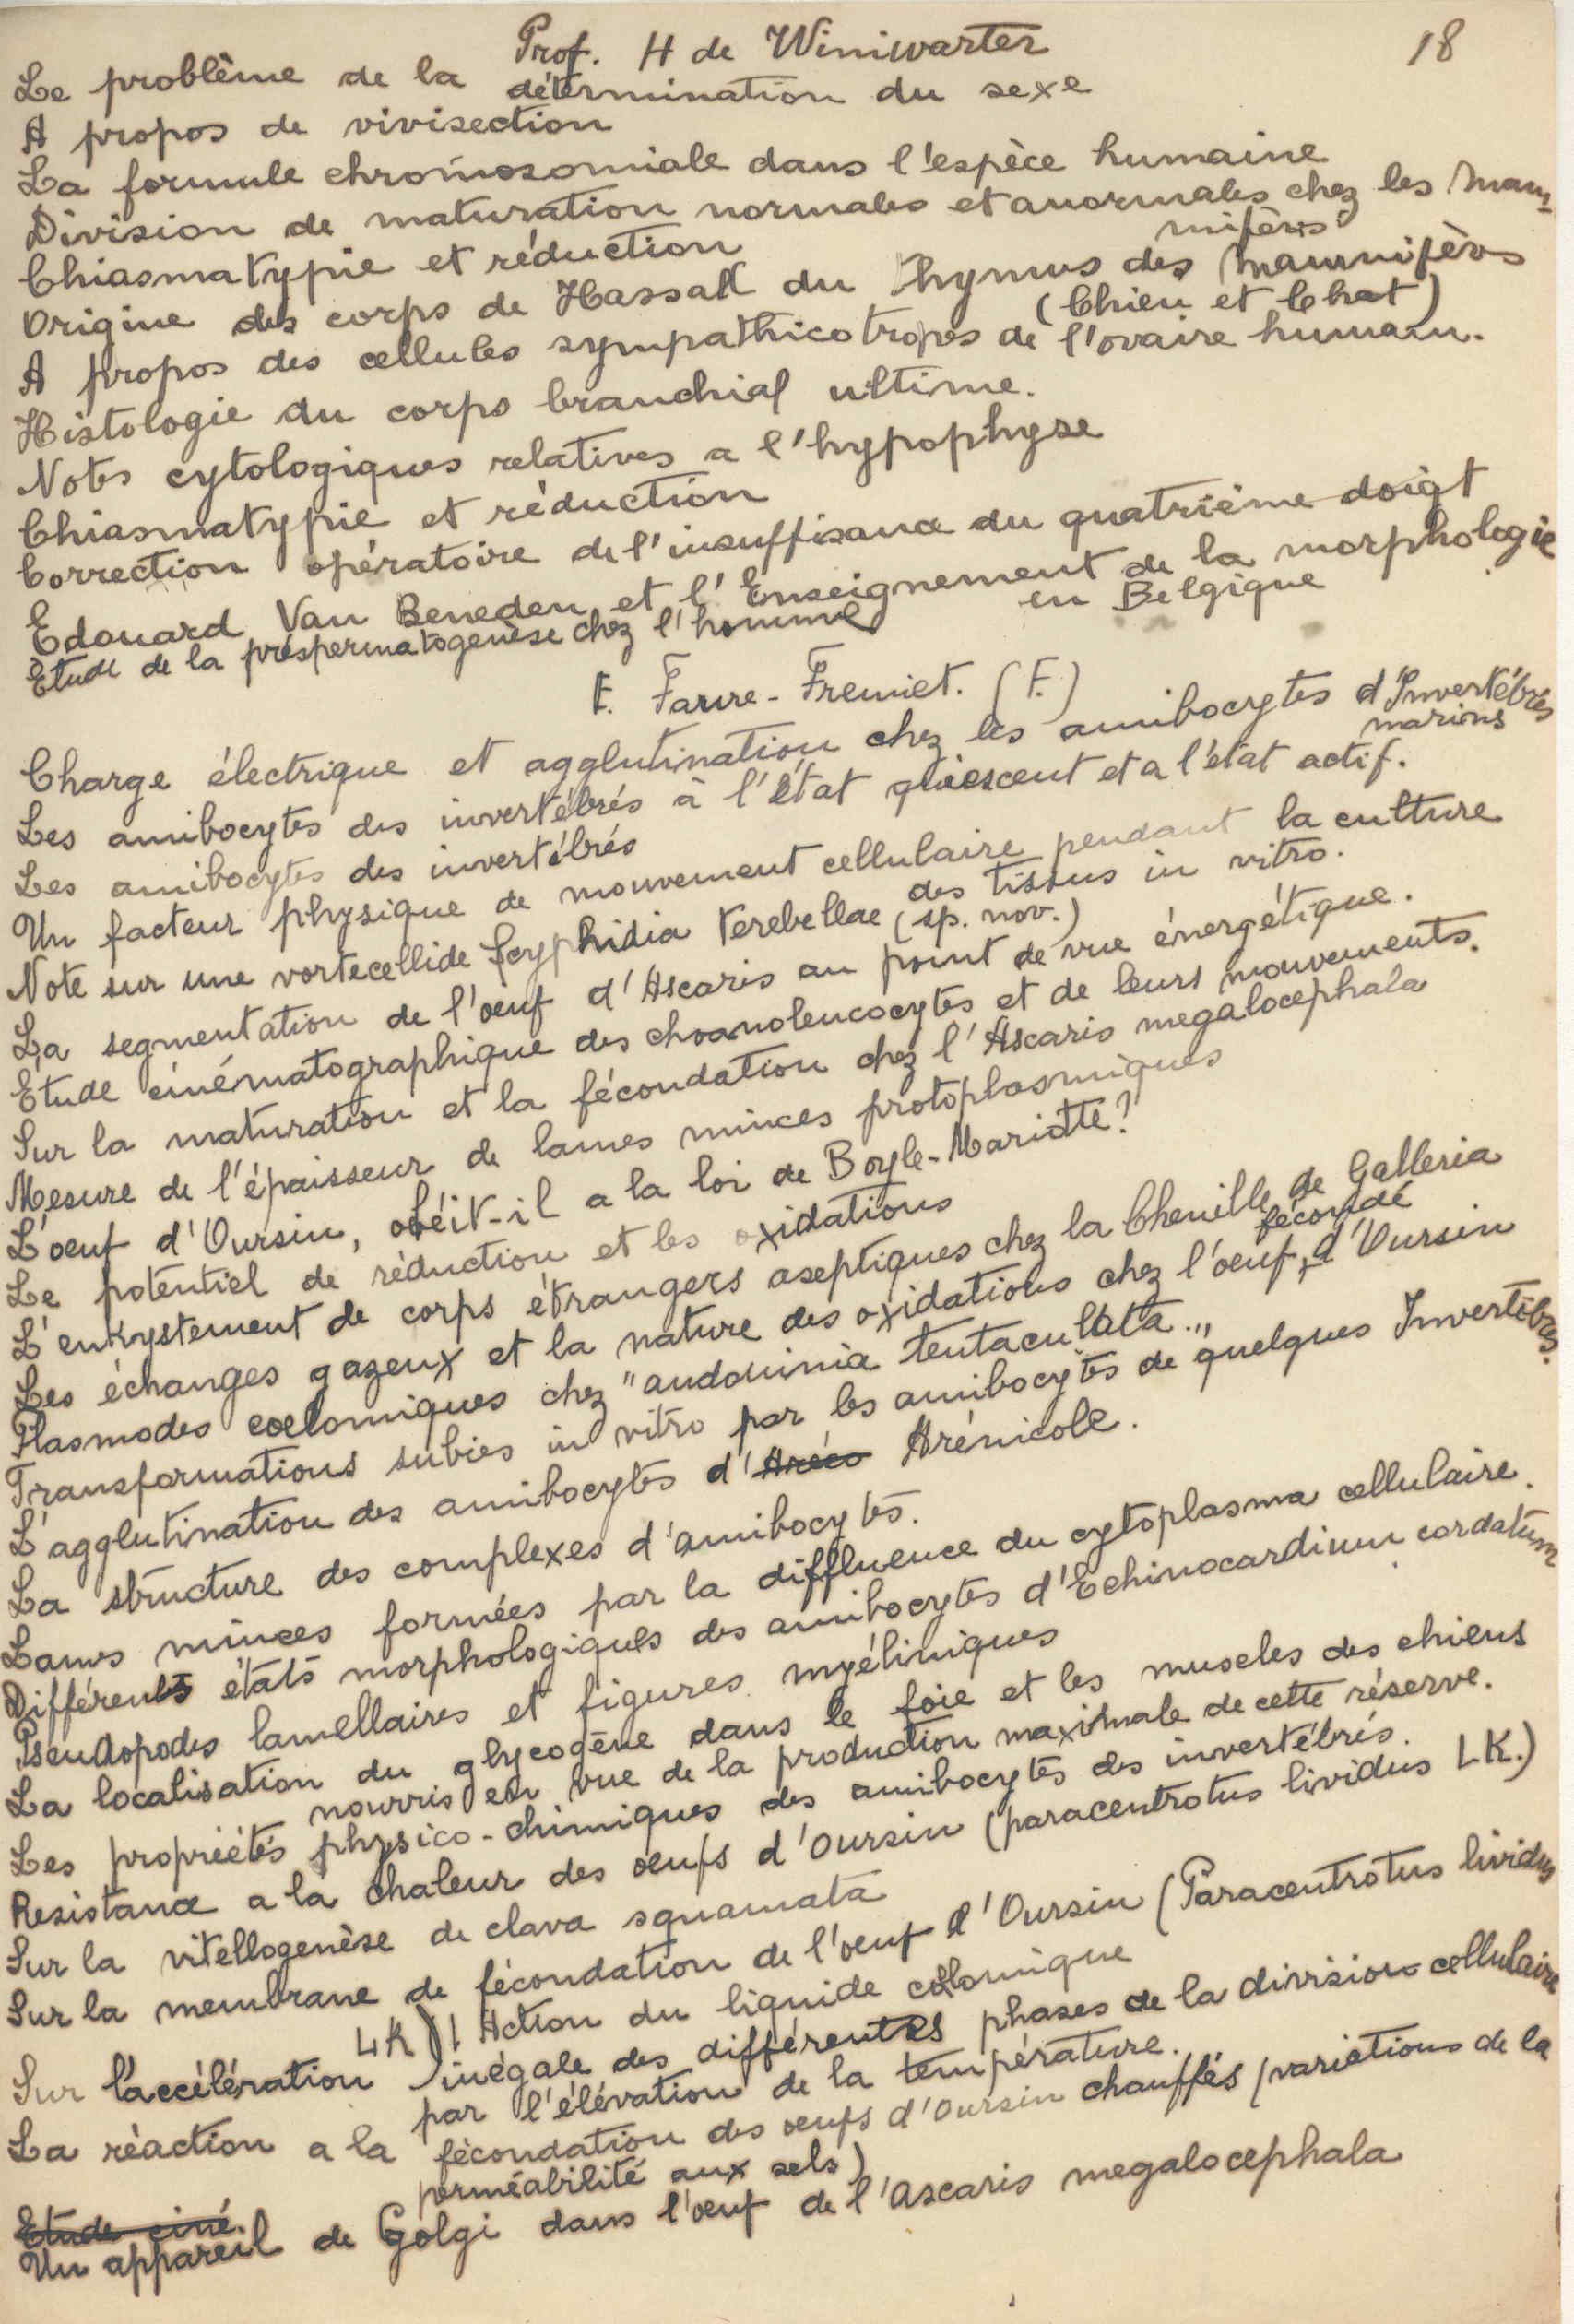 Prof. H de Winiwarter
18
Le problème de la détermination du sexe
A propos de vivisection
La formule chromosomiale dans l'espèce humaine
Division de maturation normales et anormales chez les Mam-
mifères
Chiasmatypie et réduction
Origine des corps de Hassall du Thymus des Mammifères
(Chien et Chat)
A propos des cellules sympathicotropes de l'ovaire humain.
Histologie du corps branchial ultime.
Notes cytologiques relatives a l'hypophyse
Chiasmatypie et réduction
Correction opératoire de l'insuffisance du quatrième doigt
Edouard Van Beneden et l'Enseignement de la morphologie
en Belgique
Etude de la préspermatogenèse chez l'homme
E. Faure-Fremiet. (F.)
Charge électrique et agglutination chez les amibocytes d'Invertébrés
marins
Les amibocytes des invertébrés à l'état quiescent et a l'état actif.
Les amibocytes des invertébrés
Un facteur physique de mouvement cellulaire pendant la culture
des tissus in vitro.
Note sur une vortecellide Scyphidia Terebellae (sp. nov.)
La segmentation de l'oeuf d'Ascaris au point de vue énergétique.
Etude cinématographique des choanoleucocytes et de leurs mouvements.
Sur la maturation et la fécondation chez l'Ascaris megalocephala
Mesure de l'épaisseur de lames minces protoplasmiques
L'oeuf d'Oursin, obéit-il a la loi de Boyle-Mariotte?
Le potentiel de réduction et les oxidations
L'enkystement de corps étrangers aseptiques chez la Chenille de Galleria
fécondé
Les échanges gazeux et la nature des oxidations chez l'oeuf d'Oursin
Plasmodes coelomiques chez "audouinia tentaculata.."
Transformations subies in vitro par les amibocytes de quelques Invertébrés.
L'agglutination des amibocytes d'Aréco Arénicole.
La structure des complexes d'amibocytes.
Lames minces formées par la diffluence du cytoplasma cellulaire.
Différents états morphologiques des amibocytes d'Echinocardium cordatum
Pseudopodes lamellaires et figures myéliniques
La localisation du glycogène dans le foie et les muscles des chiens
nourris en vue de la production maximale de cette réserve.
Les propriétés physico-chimiques des amibocytes des invertébrés.
Resistance a la chaleur des oeufs d'Oursin (paracentrotus lividus LK.)
Sur la vitellogenèse de clava squamata
Sur la membrane de fécondation de l'oeuf d'Oursin (Paracentrotus lividus
LK)! Action du liquide coelomique
Sur l'accélération inégale des différentes phases de la division cellulaire
par l'élévation de la température.
La réaction a la fécondation des oeufs d'Oursin chauffés (variations de la
perméabilité aux sels)
Etude ciné.
Un appareil de Golgi dans l'oeuf de l'Ascaris megalocephala